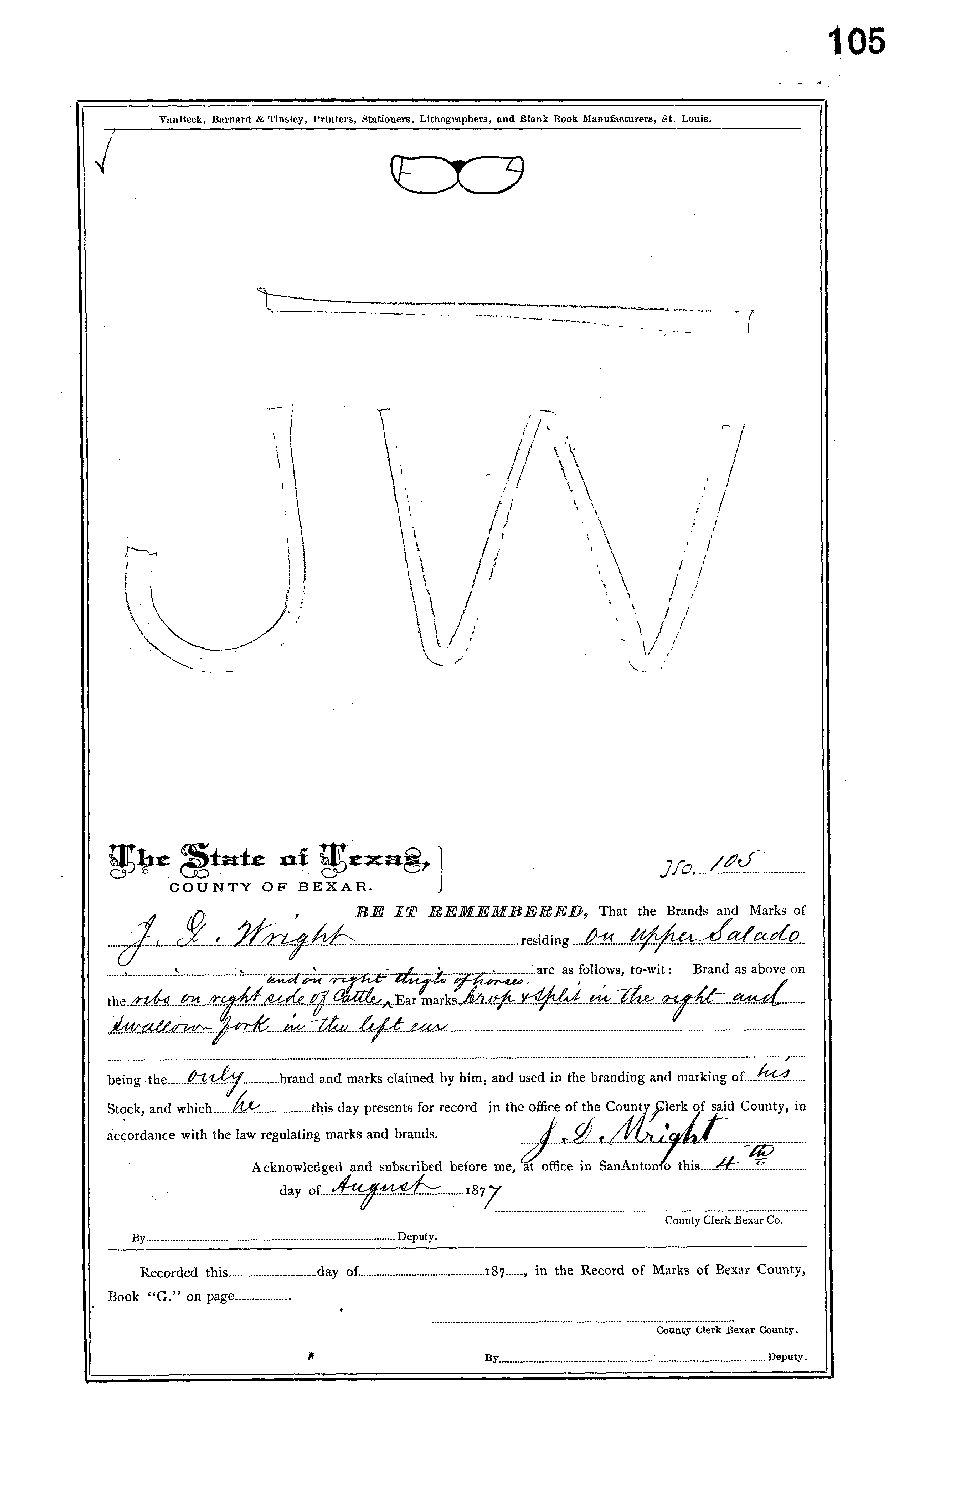 105
VanBeck, Barnard & Tinsley, Printers, Stationers, Lithographers, and Blank Book Manufacturers, St. Louis.
J W
The State of Texas,
COUNTY OF BEXAR.
No. 105
BE IT REMEMBERED, That the Brands and Marks of
J. G. Wright residing on upper Salado
are as follows, to-wit: Brand as above on
and on right thigh of horses.
the ribs on right side of Cattle Ear marks, & split in the right and
swallow fork in the left ear
being the only brand and marks claimed by him, and used in the branding and marking of his
Stock, and which he this day presents for record in the office of the County Clerk of said County, in
accordance with the law regulating marks and brands. Wright
Acknowledged and subscribed before me, at office in SanAntonio this 4th
day of August 1877
County Clerk Bexar Co.
By Deputy.
Recorded this day of 187 , in the Record of Marks of Bexar County,
Book "G." on page
County Clerk Bexar County.
By Deputy.